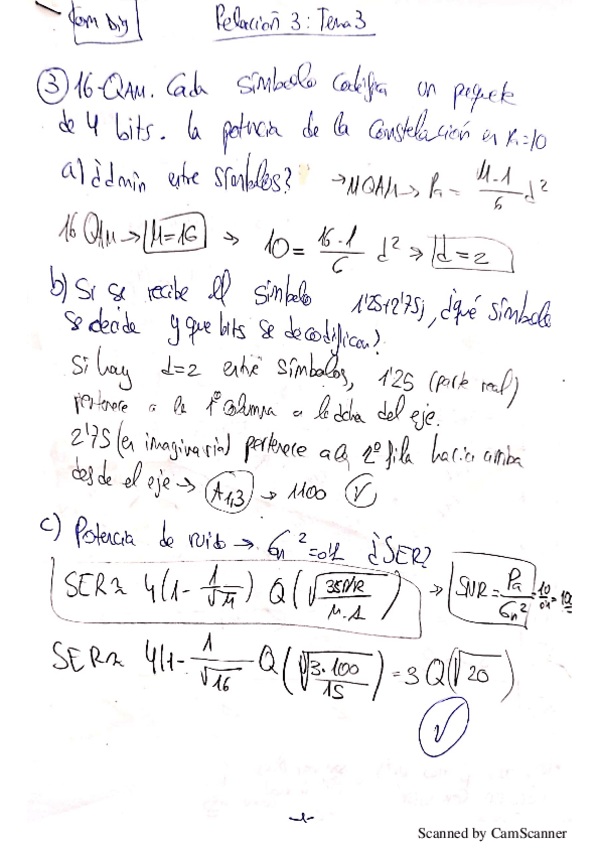 Com Dig Relación 3: Tema 3
③ 16-QAM. Cada símbolo codifica un paquete
de 4 bits. La potencia de la constelación es Pa=10
a) ¿dmin entre símbolos? → MQAM → Pa = (M-1)/6 d²
16 QAM → M=16 → 10 = (16-1)/6 d² → d=2
b) Si se recibe el símbolo 1'25+2'75j, ¿qué símbolo
se decide y que bits se decodifican?
Si hay d=2 entre símbolos, 1'25 (parte real)
pertenece a la 1ª columna a la dcha del eje.
2'75 (en imaginaria) pertenece a la 2º fila hacia arriba
desde el eje → A1,3 → 1100 ✓
c) Potencia de ruido → σn²=0'1 ¿SER?
SER ≈ 4(1 - 1/√M) Q(√(3SNR/(M-1))) → SNR = Pa/σn² =
SER ≈ 4(1 - 1/√16 Q(√(3·100/15)) = 3Q(√20)
✓
-1-
Scanned by CamScanner